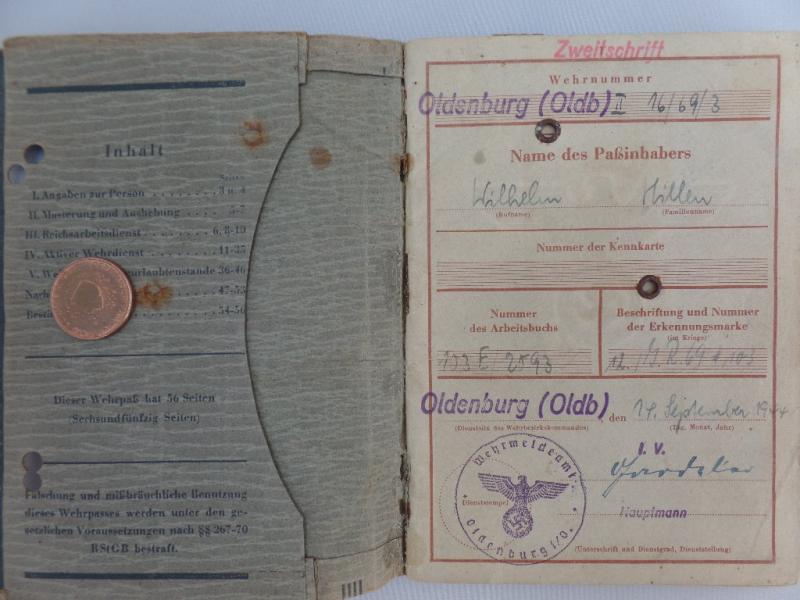 Inhalt
Seiten
I. Angaben zur Person . . . . . . . . 3 u. 4
II. Musterung und Aushebung . . . . 5-7
III. Reichsarbeitsdienst . . . . . 6, 8-10
IV. Aktiver Wehrdienst . . . . . . 11-35
V. We urlaubtenstande 36-46
Nach 47-53
Besti 54-56
Dieser Wehrpaß hat 56 Seiten
(Sechsundfünfzig Seiten)
Fälschung und mißbräuchliche Benutzung
dieses Wehrpasses werden unter den ge-
setzlichen Voraussetzungen nach §§ 267-70
RStGB bestraft.
Zweitschrift
Wehrnummer
Oldenburg (Oldb) II 16/69/3
Name des Paßinhabers
Wilhelm Hillen
(Rufname) (Familienname)
Nummer der Kennkarte
Nummer
des Arbeitsbuchs
Beschriftung und Nummer
der Erkennungsmarke
(im Kriege)
103 E/2593
Oldenburg (Oldb) den 14. September 1944
(Dienstsitz des Wehrbezirkskommandos) (Tag, Monat, Jahr)
I. V.
Wehrmeldeamt
Dienststempel
Oldenburg i/O.
Hauptmann
(Unterschrift und Dienstgrad, Dienststellung)